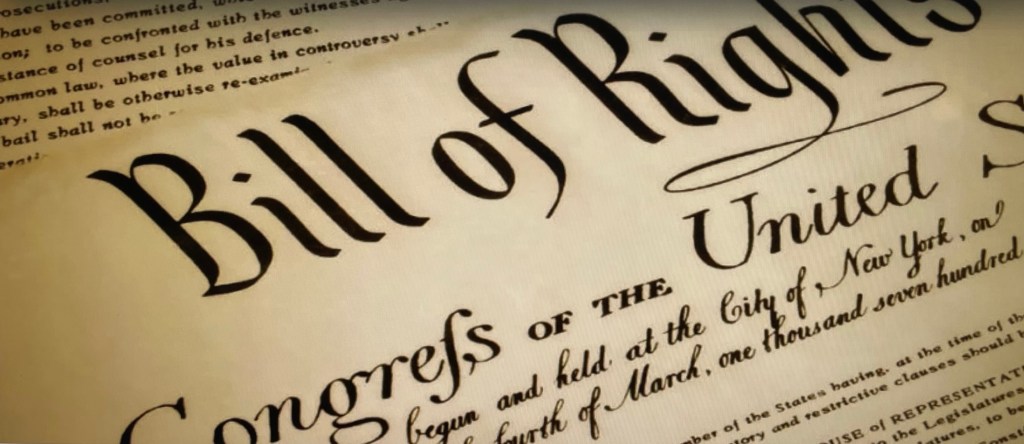 have been committed,
to be confronted with the witnesses
stance of counsel for his defence.
mmon law, where the value in controversy
ry, shall be otherwise re-exami
bail shall not be
Bill of Rights
Congreſs OF THE United S
begun and held, at the City of New York, on
fourth of March, one thousand seven hundred
ber of the States having, at the time of th
ory and restrictive clauses should
USE of REPRESENTAT
the Legislatures